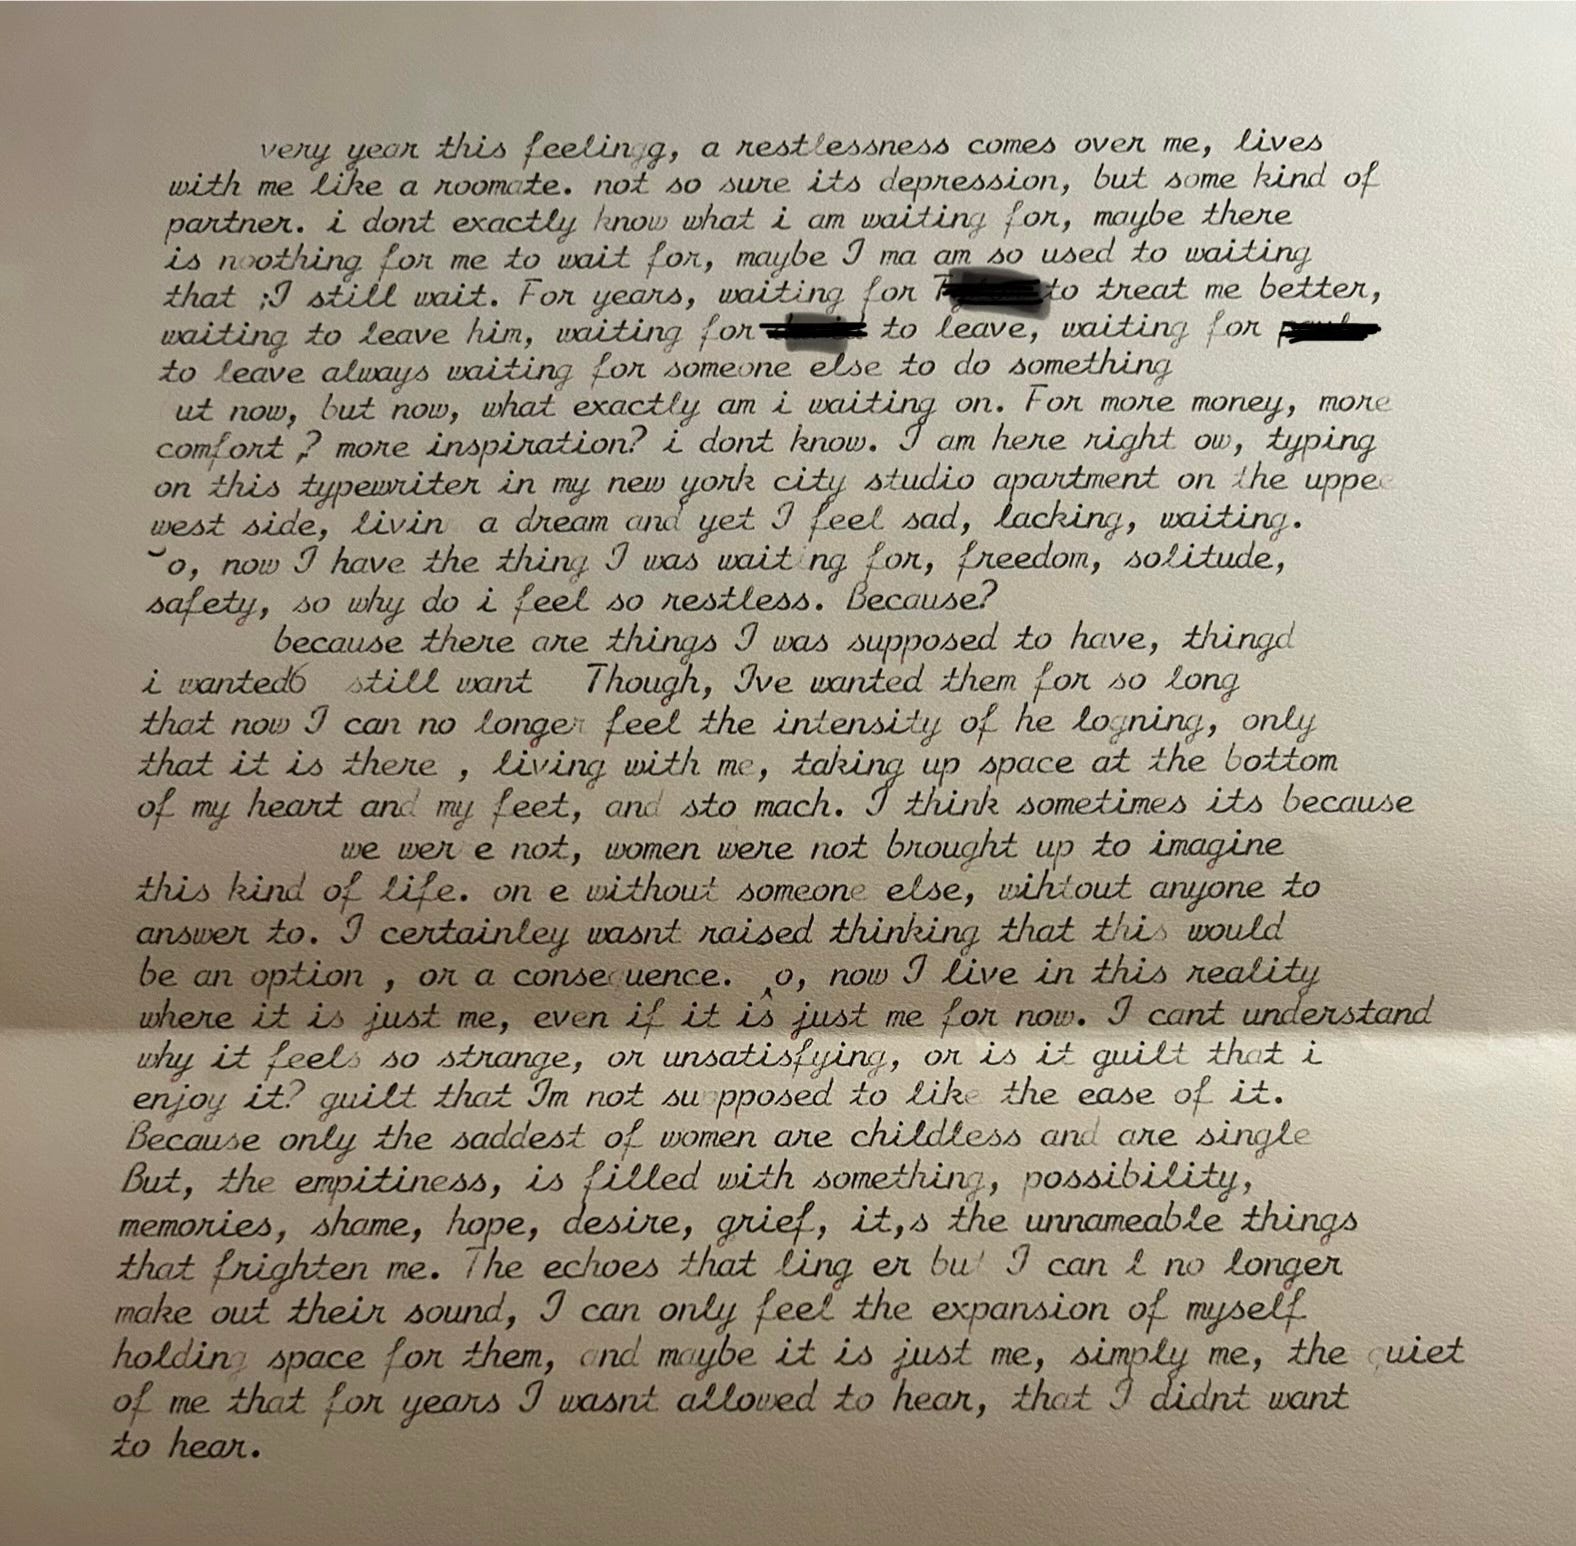 very year this feelingg, a restlessness comes over me, lives
with me like a roomate. not so sure its depression, but some kind of
partner. i dont exactly know what i am waiting for, maybe there
is noothing for me to wait for, maybe I ma am so used to waiting
that ;I still wait. For years, waiting for to treat me better,
waiting to leave him, waiting for to leave, waiting for
to leave always waiting for someone else to do something
ut now, but now, what exactly am i waiting on. For more money, more
comfort ? more inspiration? i dont know. I am here right ow, typing
on this typewriter in my new york city studio apartment on the uppee
west side, livin a dream and yet I feel sad, lacking, waiting.
o, now I have the thing I was waiting for, freedom, solitude,
safety, so why do i feel so restless. Because?
because there are things I was supposed to have, thingd
i wanted6 still want Though, Ive wanted them for so long
that now I can no longer feel the intensity of he logning, only
that it is there , living with me, taking up space at the bottom
of my heart and my feet, and sto mach. I think sometimes its because
we wer e not, women were not brought up to imagine
this kind of life. on e without someone else, wihtout anyone to
answer to. I certainley wasnt raised thinking that this would
be an option , or a conse uence. o, now I live in this reality
where it is just me, even if it is just me for now. I cant understand
why it feels so strange, or unsatisfying, or is it guilt that i
enjoy it? guilt that Im not su pposed to like the ease of it.
Because only the saddest of women are childless and are single
But, the empitiness, is filled with something, possibility,
memories, shame, hope, desire, grief, it,s the unnameable things
that frighten me. The echoes that ling er but I can l no longer
make out their sound, I can only feel the expansion of myself
holding space for them, and maybe it is just me, simply me, the quiet
of me that for years I wasnt allowed to hear, that I didnt want
to hear.